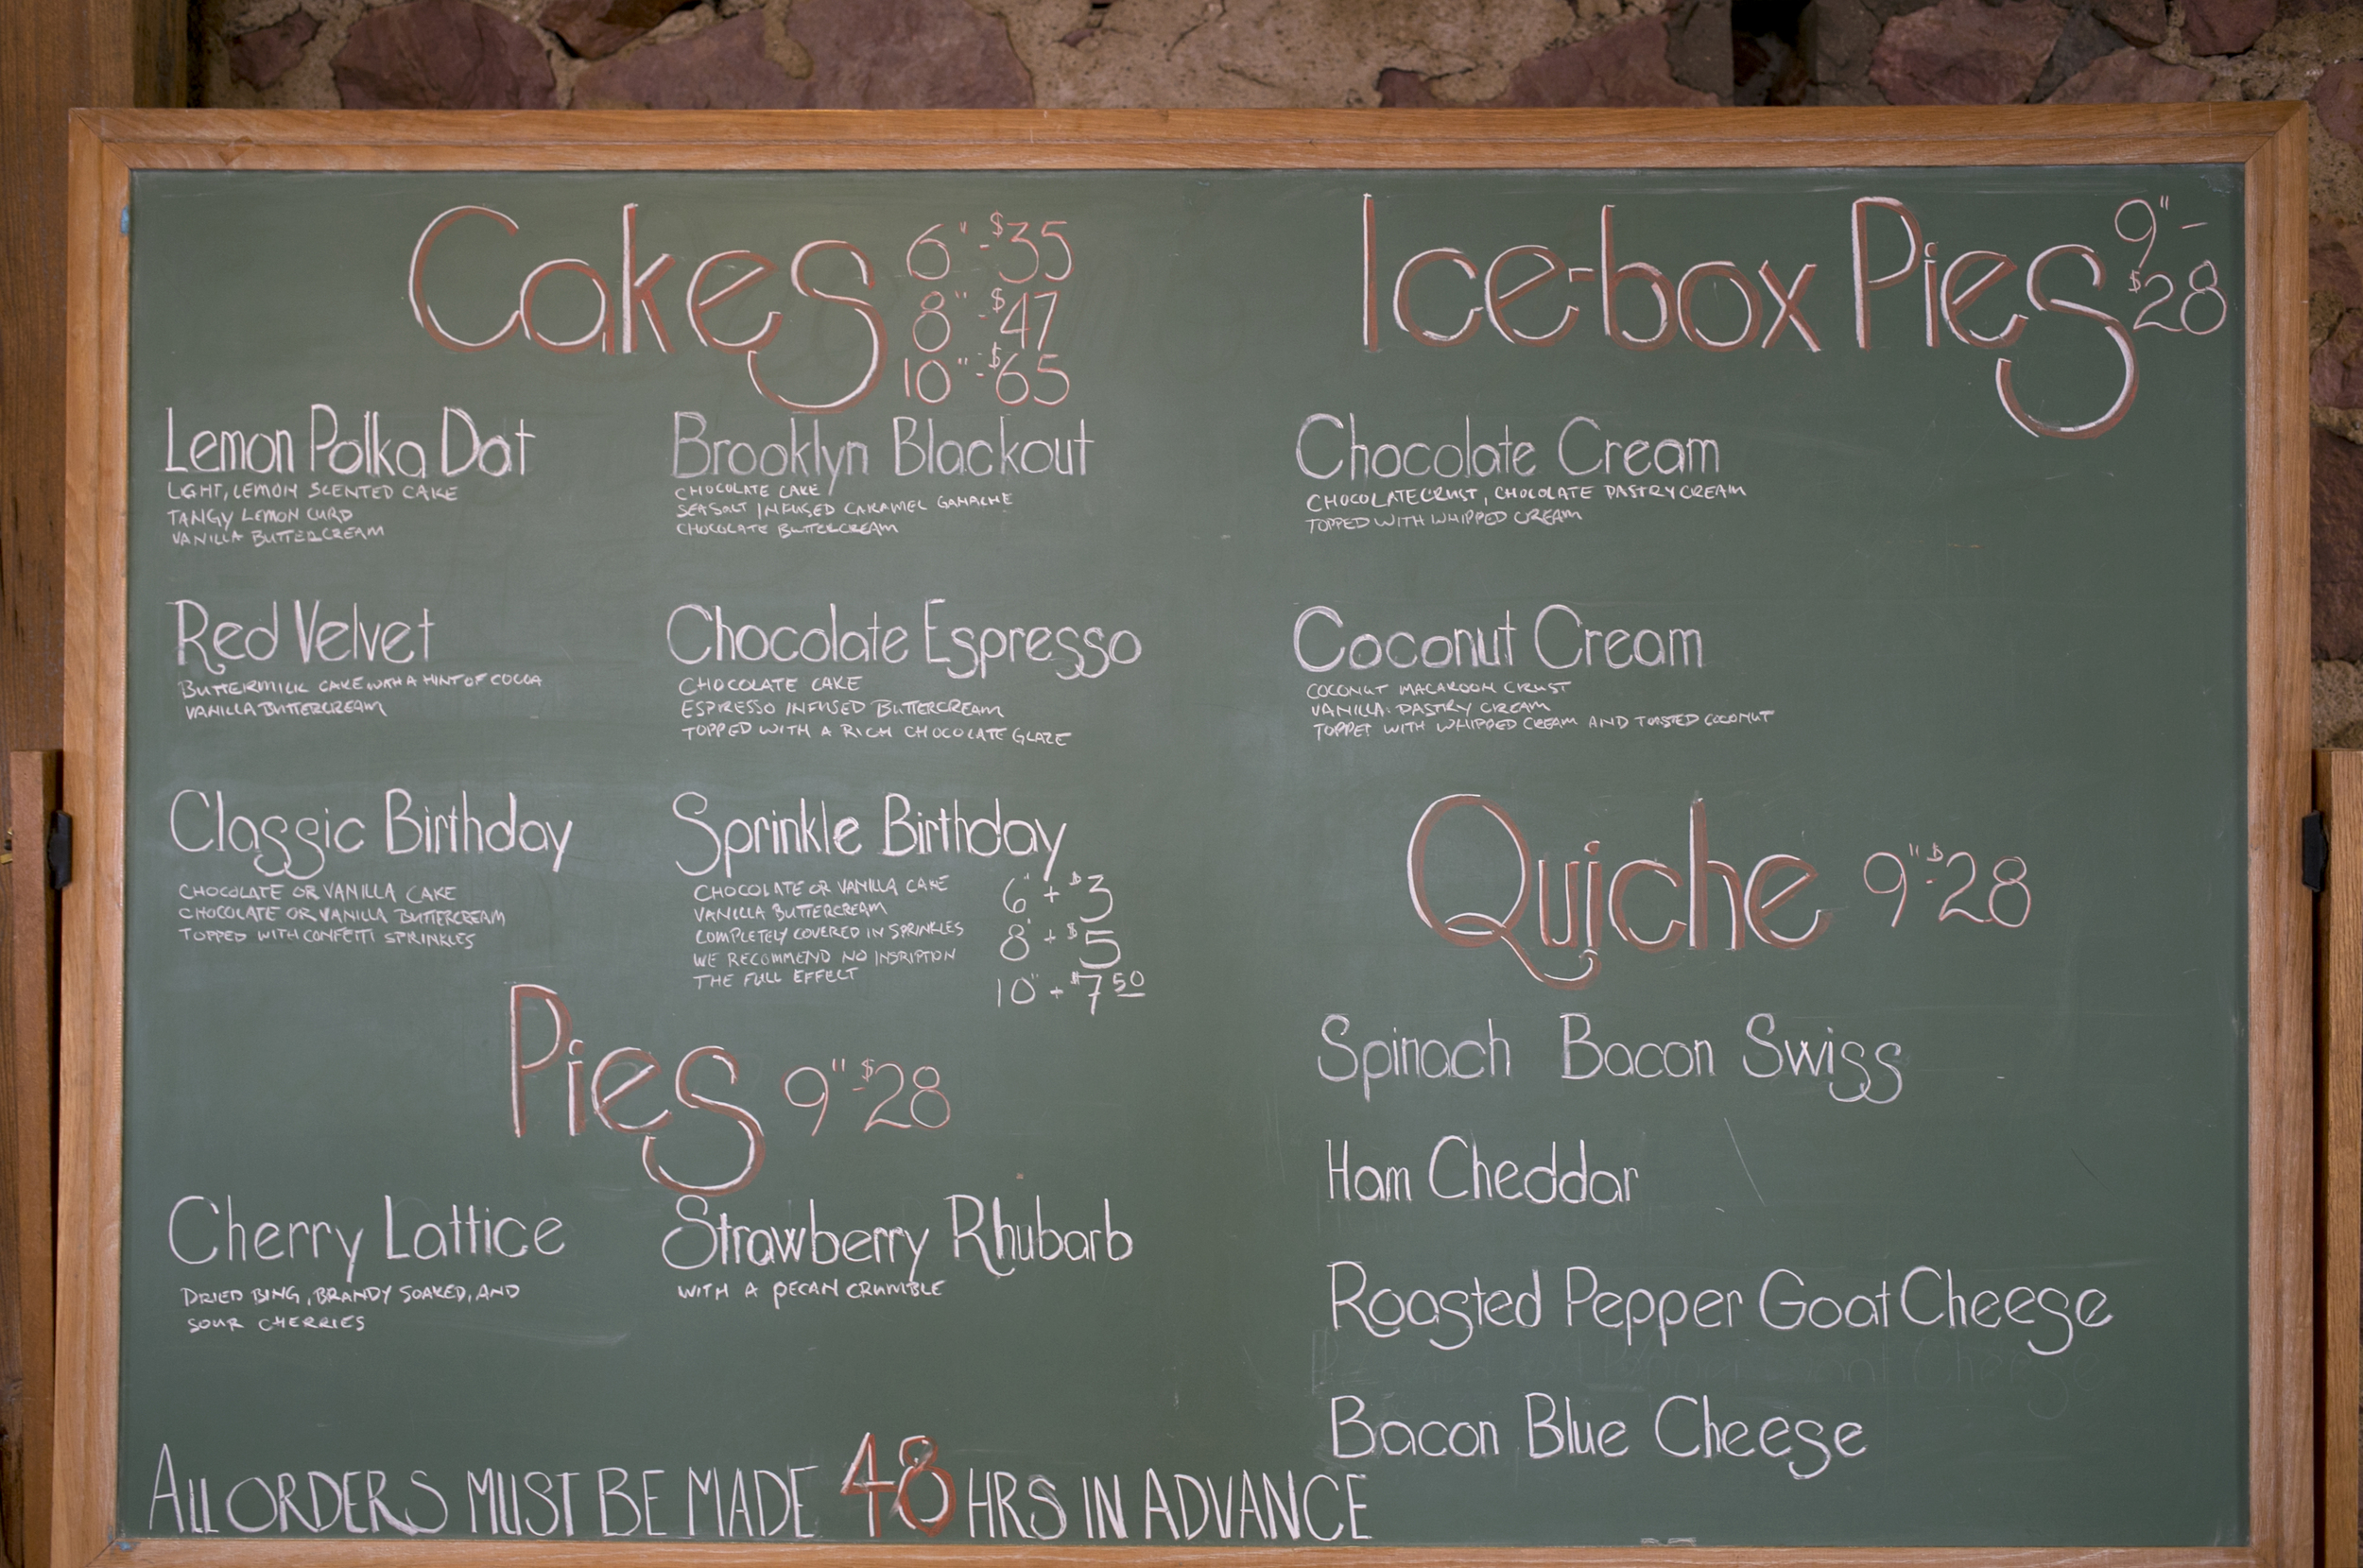 Cakes
6" - $35
8" - $47
10" - $65
Lemon Polka Dot
LIGHT, LEMON SCENTED CAKE
TANGY LEMON CURD
VANILLA BUTTERCREAM
Brooklyn Blackout
CHOCOLATE CAKE
SEA SALT INFUSED CARAMEL GANACHE
CHOCOLATE BUTTERCREAM
Red Velvet
BUTTERMILK CAKE WITH A HINT OF COCOA
VANILLA BUTTERCREAM
Chocolate Espresso
CHOCOLATE CAKE
ESPRESSO INFUSED BUTTERCREAM
TOPPED WITH A RICH CHOCOLATE GLAZE
Classic Birthday
CHOCOLATE OR VANILLA CAKE
CHOCOLATE OR VANILLA BUTTERCREAM
TOPPED WITH CONFETTI SPRINKLES
Sprinkle Birthday
CHOCOLATE OR VANILLA CAKE
VANILLA BUTTERCREAM
COMPLETELY COVERED IN SPRINKLES
WE RECOMMEND NO INSRIPTION
THE FULL EFFECT
6" + $3
8" + $5
10" + $7.50
Pies 9" - $28
Cherry Lattice
DRIED BING, BRANDY SOAKED, AND
SOUR CHERRIES
Strawberry Rhubarb
WITH A PECAN CRUMBLE
Ice-box Pies 9" -
$28
Chocolate Cream
CHOCOLATE CRUST, CHOCOLATE PASTRY CREAM
TOPPED WITH WHIPPED CREAM
Coconut Cream
COCONUT MACAROON CRUST
VANILLA PASTRY CREAM
TOPPET WITH WHIPPED CREAM AND TOASTED COCONUT
Quiche 9" - $28
Spinach Bacon Swiss
Ham Cheddar
Roasted Pepper Goat Cheese
Bacon Blue Cheese
ALL ORDERS MUST BE MADE 48 HRS IN ADVANCE